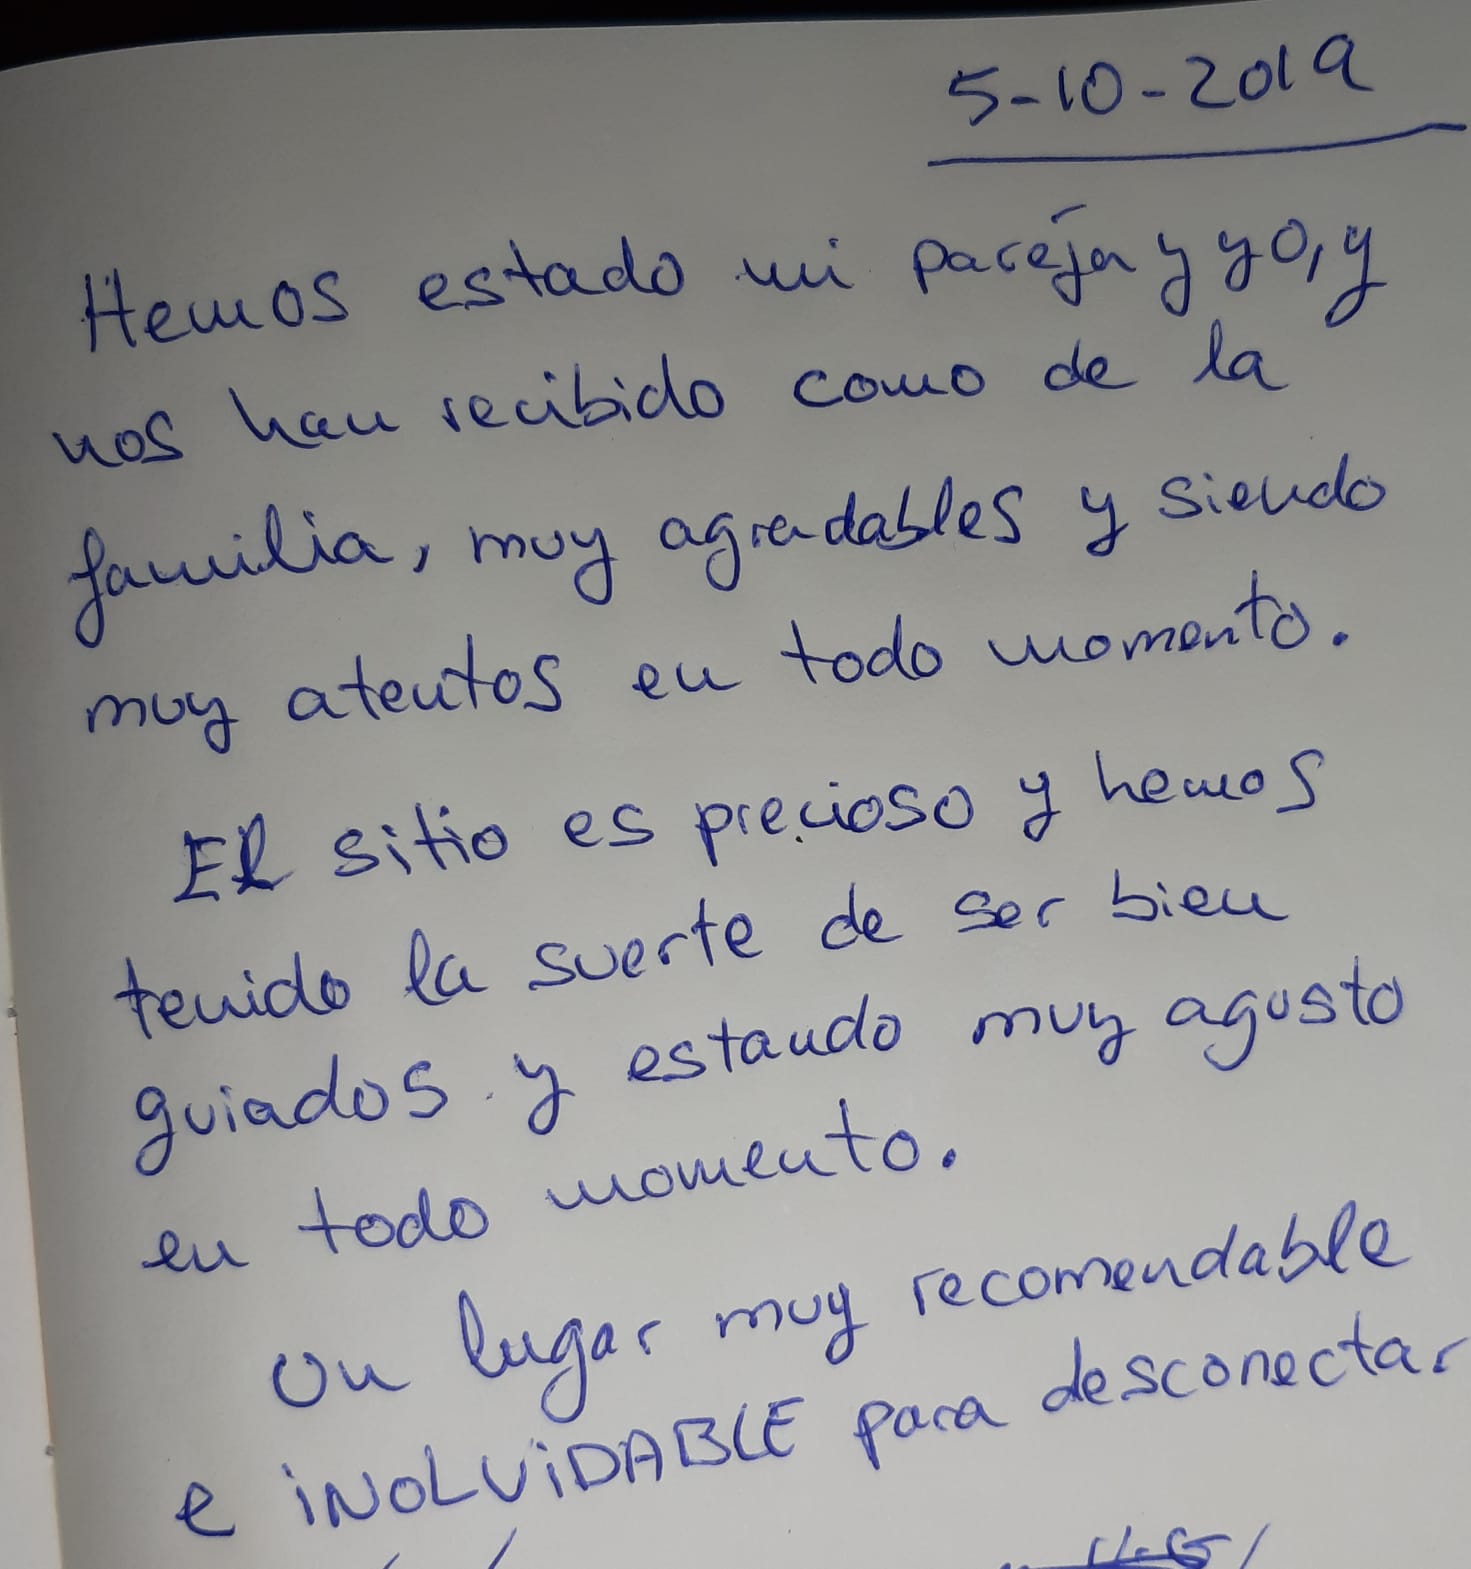 5-10-2019
Hemos estado mi pareja y yo, y
nos han recibido como de la
familia, muy agradables y siendo
muy atentos en todo momento.
El sitio es precioso y hemos
tenido la suerte de ser bien
guiados y estando muy agusto
en todo momento.
Un lugar muy recomendable
e iNOLViDABLE para desconectar